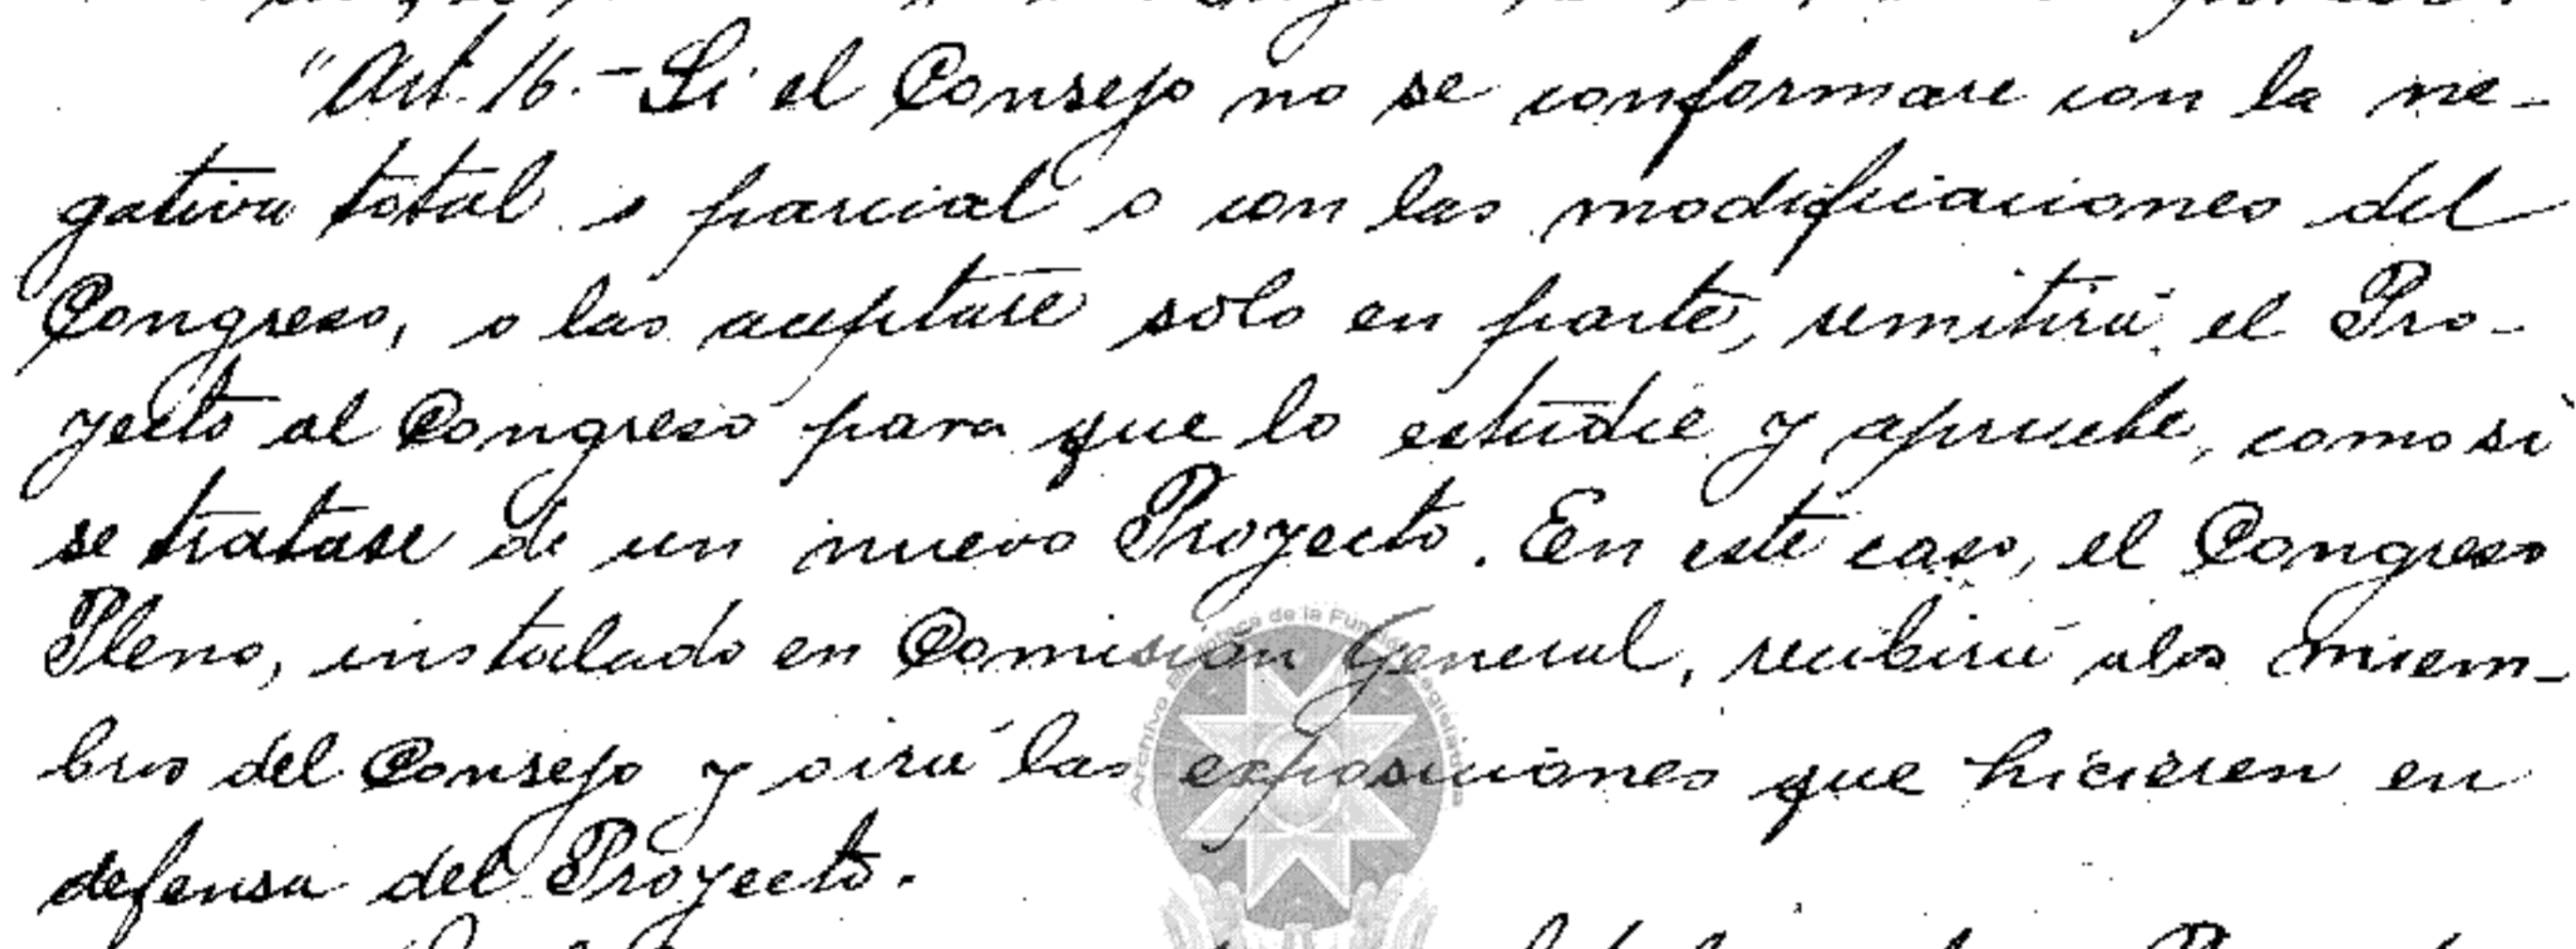 "Art. 16.- Si el Consejo no se conformare con la ne-
gativa total o parcial o con las modificaciones del
Congreso, o las aceptare sólo en parte, remitirá el Pro-
yecto al Congreso para que lo estudie y apruebe, como si
se tratase de un nuevo Proyecto. En este caso, el Congreso
Pleno, instalado en Comisión General, recibirá a los miem-
bros del Consejo y oirá las exposiciones que hicieren en
defensa del Proyecto.